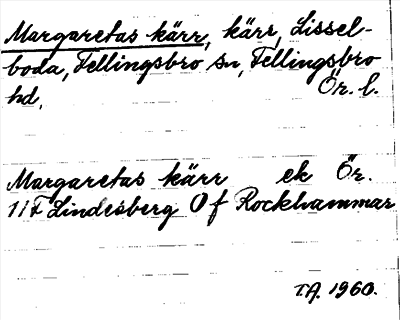 Margaretas kärr, kärr, Lissel-
boda, Fellingsbro sn, Fellingsbro
hd, Ör. l.
Margaretas kärr ek Ör.
11F Lindesberg Of Rockhammar
T.A. 1960.